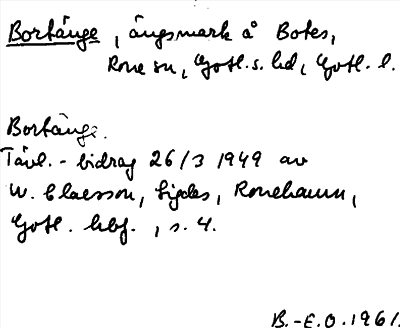 Bortänge, ängsmark å Botes,
Rone sn, Gotl. s. hd, Gotl. l.
Bortänge.
Tävl.-bidrag 26/3 1949 av
W. Claesson, Sigdes, Ronehamn,
Gotl. hbf., s. 4.
B.-E.O. 1961.